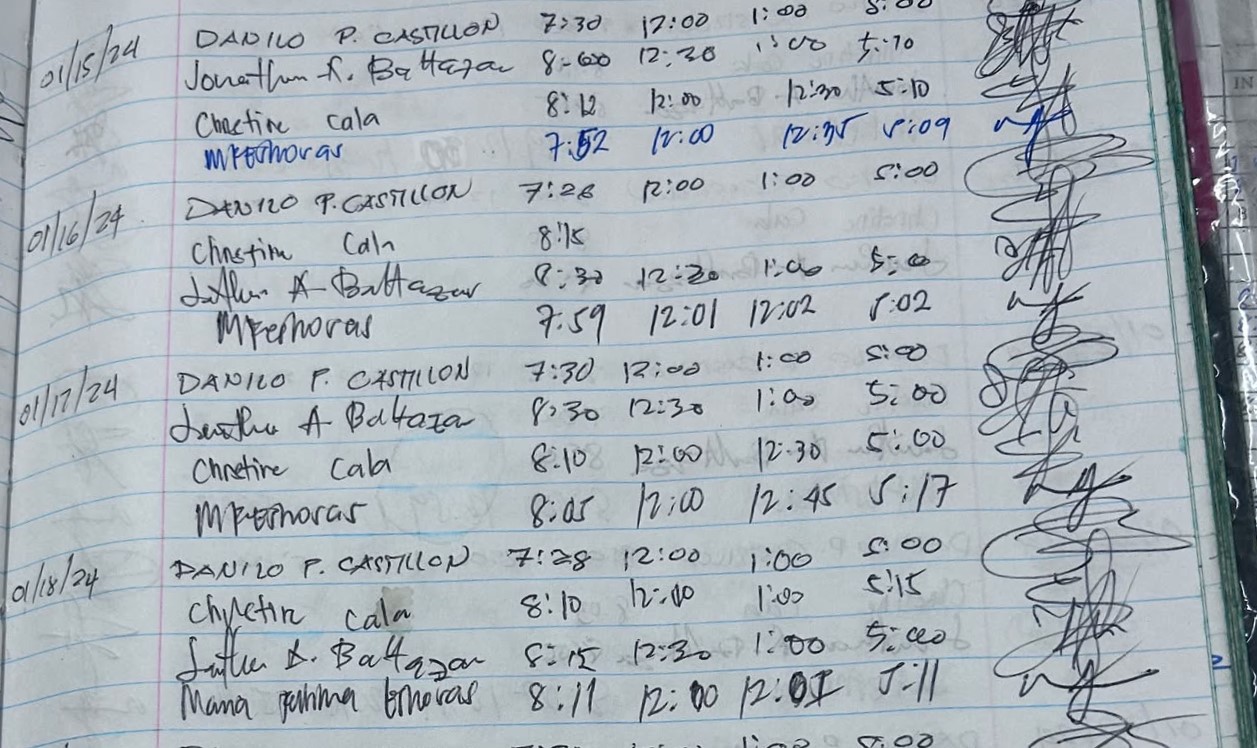 01/15/24 DANILO P. CASTILLON 7:30 12:00 1:00 5:00
Jonathan A. Baltazar 8:00 12:30 1:00 5:10
Christine Cala 8:12 12:00 12:30 5:10
MFEshoras 7:52 12:00 12:35 5:09
01/16/24 DANILO P. CASTILLON 7:28 12:00 1:00 5:00
Christine Cala 8:15
A Baltazar 8:30 12:30 1:00 5:00
MFEshoras 7:59 12:01 12:02 5:02
01/17/24 DANILO P. CASTILLON 7:30 12:00 1:00 5:00
A Baltazar 8:30 12:30 1:00 5:00
Christine Cala 8:10 12:00 12:30 5:00
MFEshoras 8:05 12:00 12:45 5:17
01/18/24 DANILO P. CASTILLON 7:28 12:00 1:00 5:00
Christine Cala 8:10 12:00 1:00 5:15
A. Baltazar 8:15 12:30 1:00 5:00
Maria Eshoras 8:11 12:00 12:01 5:11
1:00 5:00
IN